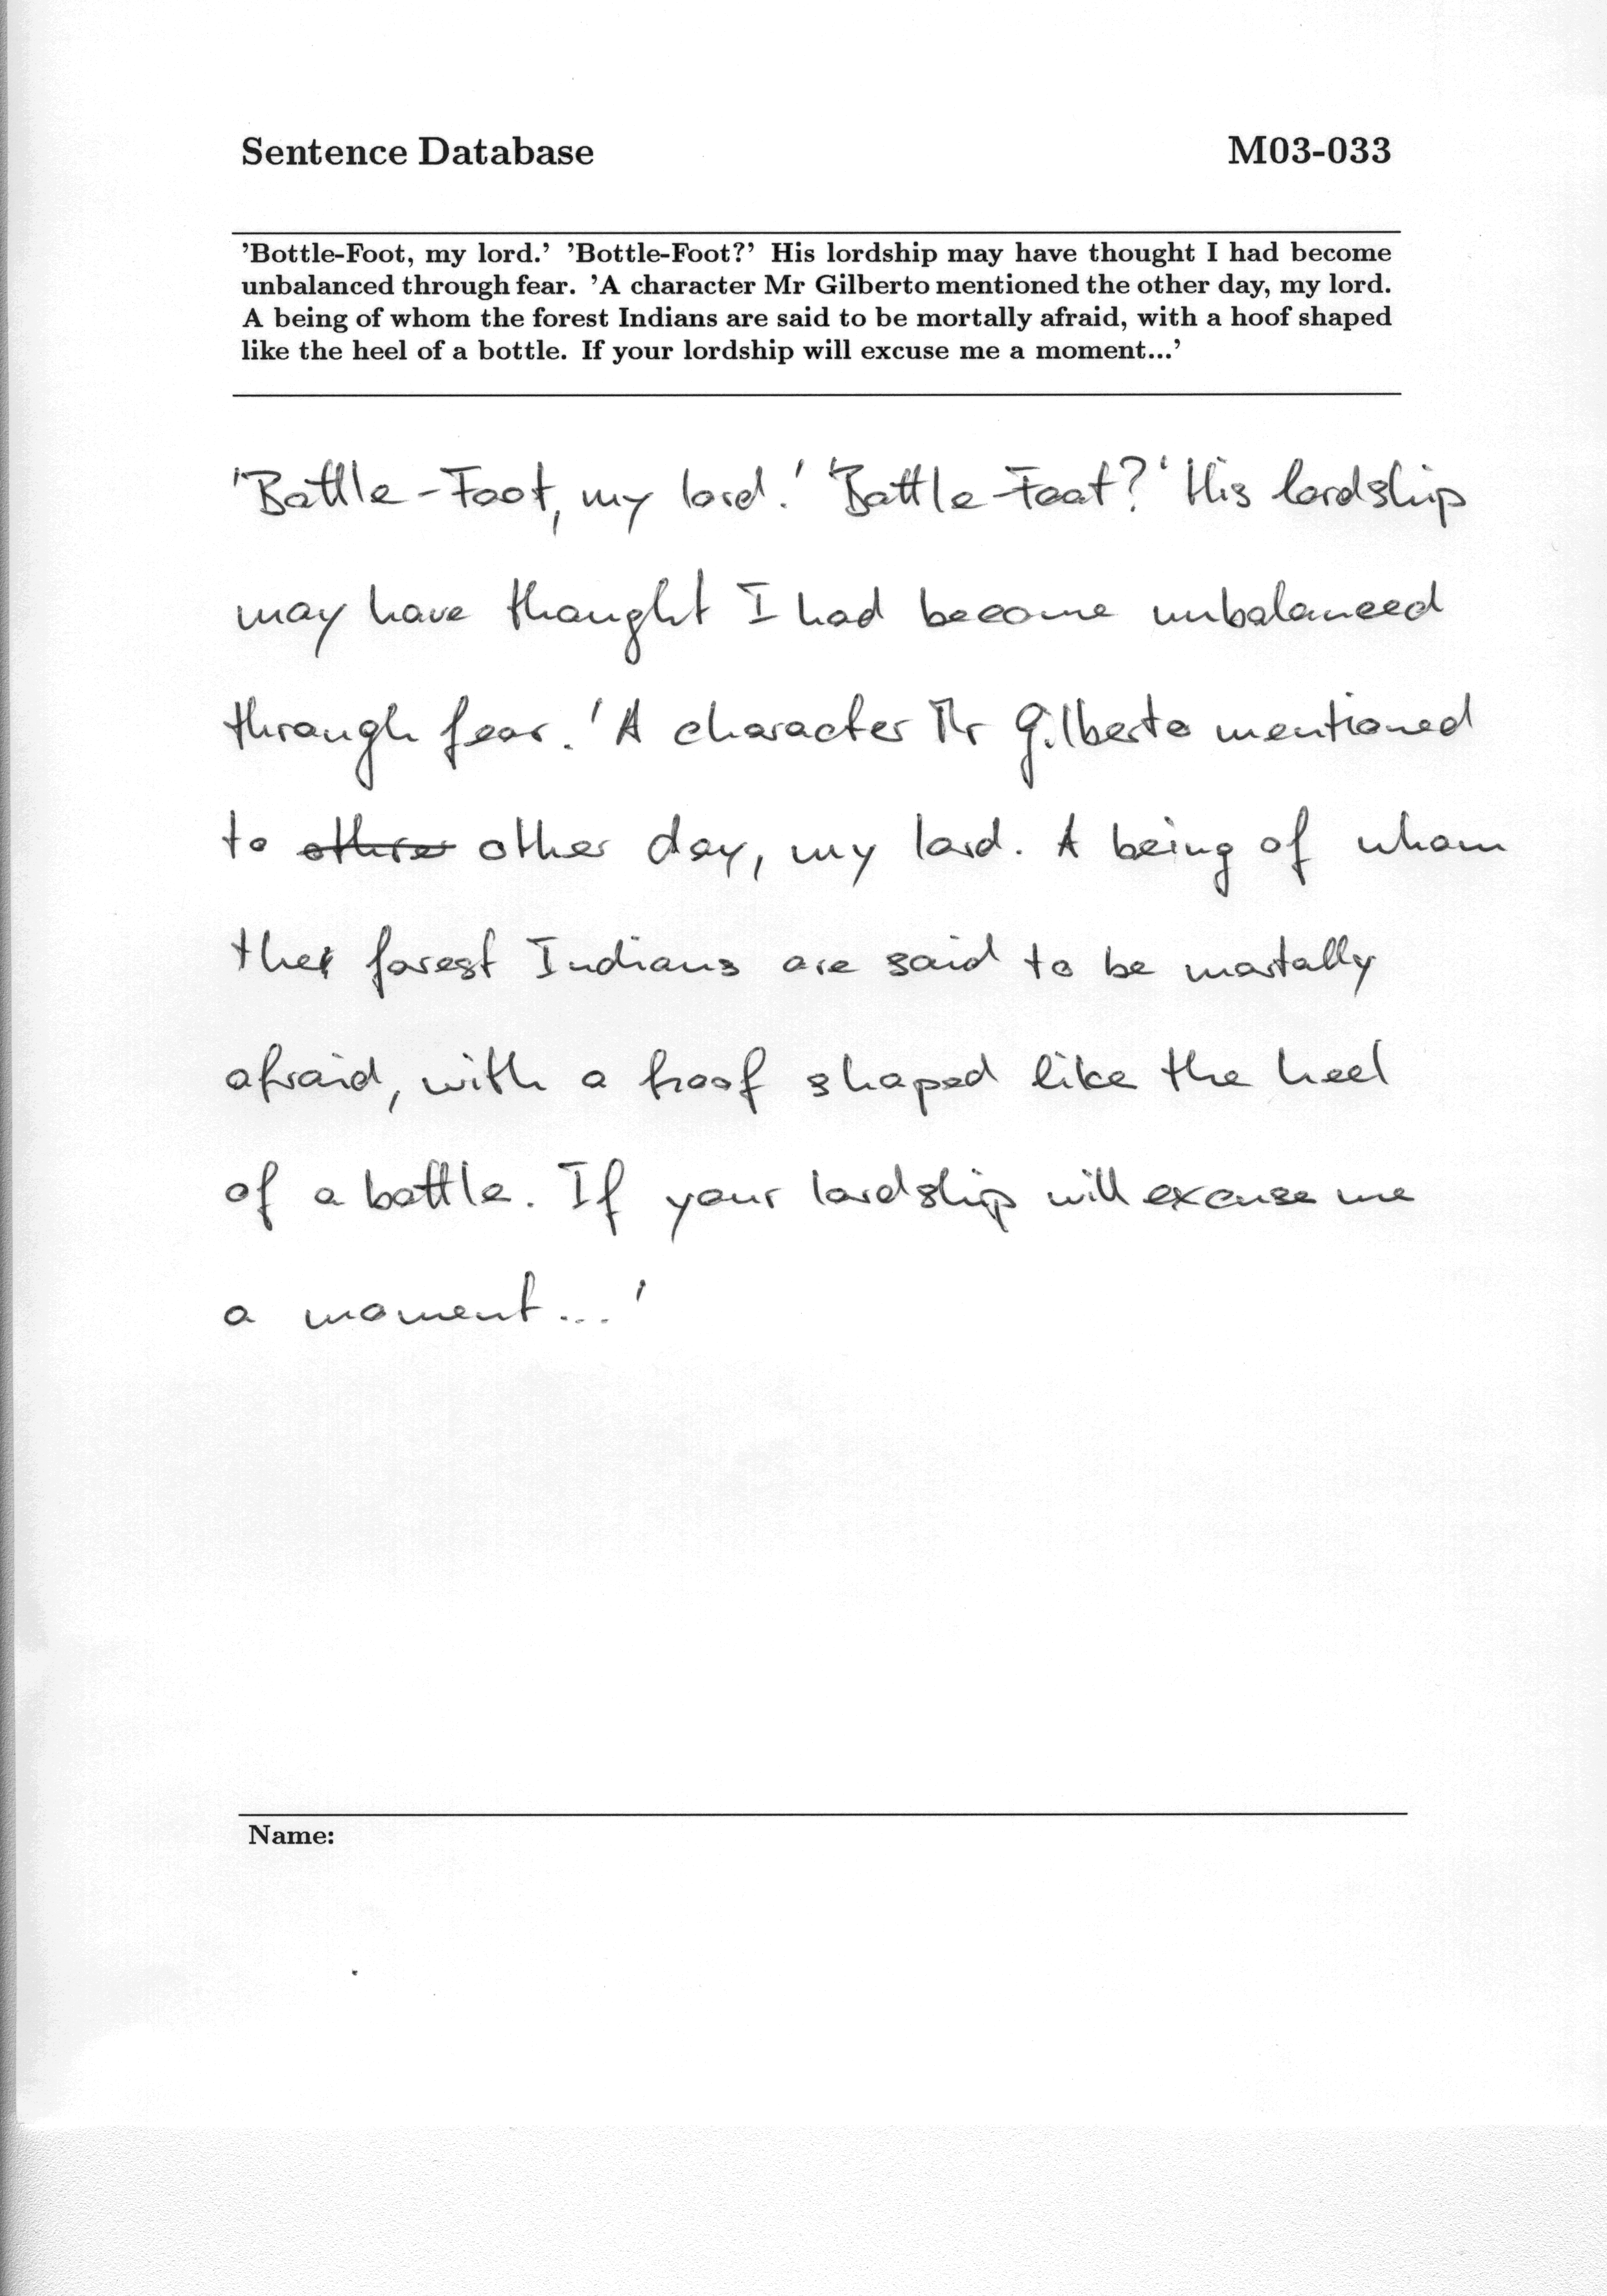 Sentence Database M03-033
'Bottle-Foot, my lord.' 'Bottle-Foot?' His lordship may have thought I had become
unbalanced through fear. 'A character Mr Gilberto mentioned the other day, my lord.
A being of whom the forest Indians are said to be mortally afraid, with a hoof shaped
like the heel of a bottle. If your lordship will excuse me a moment...'
'Bottle-Foot, my lord.' 'Bottle-Foot?' His lordship
may have thought I had become unbalanced
through fear. 'A character Mr Gilberto mentioned
to other day, my lord. A being of whom
the forest Indians are said to be mortally
afraid, with a hoof shaped like the heel
of a bottle. If your lordship will excuse me
a moment...'
Name: